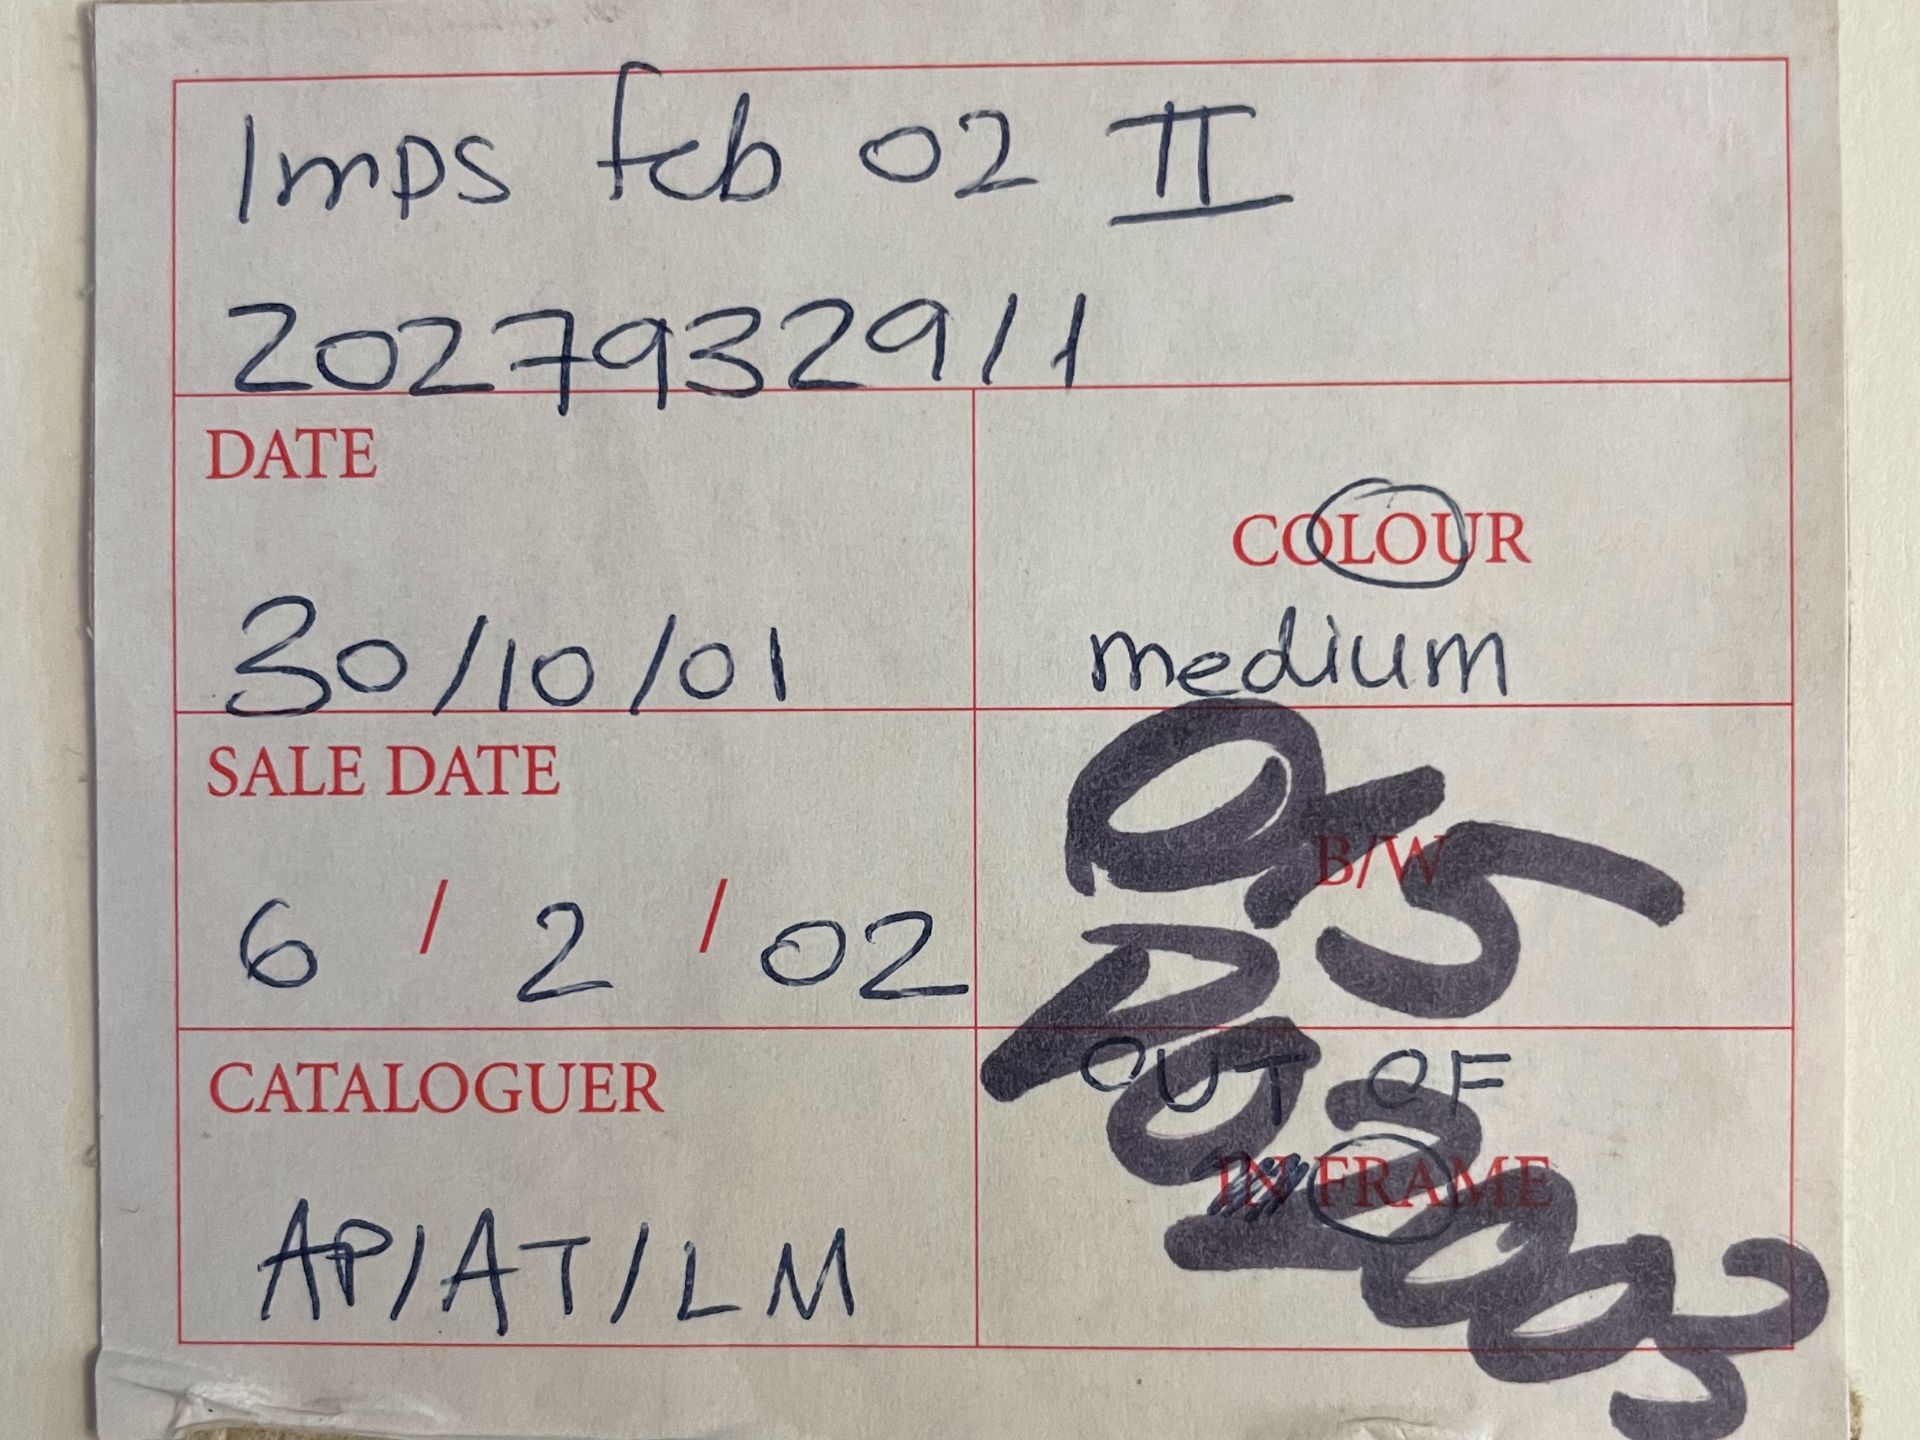 Imps feb 02 II
202793291/1
DATE
30/10/01
COLOUR
medium
SALE DATE
6 / 2 / 02
B/W
CATALOGUER
AP/AT/LM
OUT OF
IN FRAME